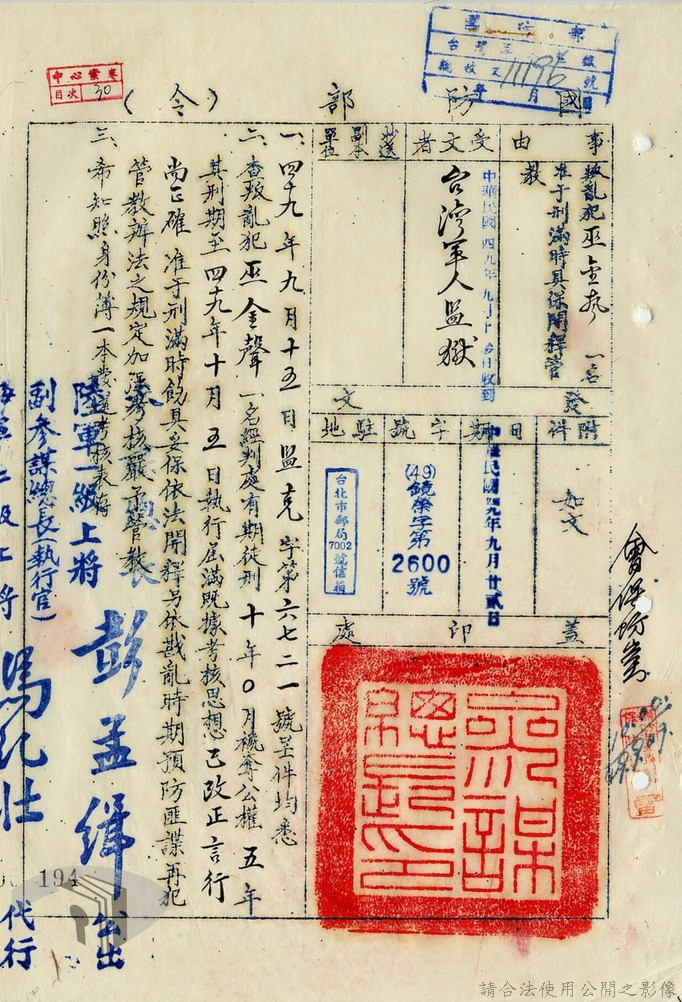 國防部(令)
中心檔案
目次 30
事由
叛亂犯巫金聲一名
准于刑滿時具保開釋管
教
受文者
台灣軍人監獄
中華民國四九年九月廿 日收到
抄送副本單位
發文
附件
如文
日期
中華民國四九年九月廿貳日
字號
(49)鏡榮字第
2600
號
駐地
台北市郵局
7002
號信箱
蓋印處
參謀總長印
一、四十九年九月十五日監克字第六七二一號呈件均悉
二、查叛亂犯巫金聲一名經判處有期徒刑十年0月褫奪公權五年
其刑期至四十九年十月五日執行屆滿既據考核思想已改正言行
尚正確准于刑滿時飭具妥保依法開釋另依戡亂時期預防匪諜再犯
管教辦法之規定加強考核嚴予管教
三、希知照身份簿一本發還考核表存
總長
陸軍一級上將
彭孟緝公出
副參謀總長(執行官)
海軍二級上將
馬紀壯代行
194
請合法使用公開之影像